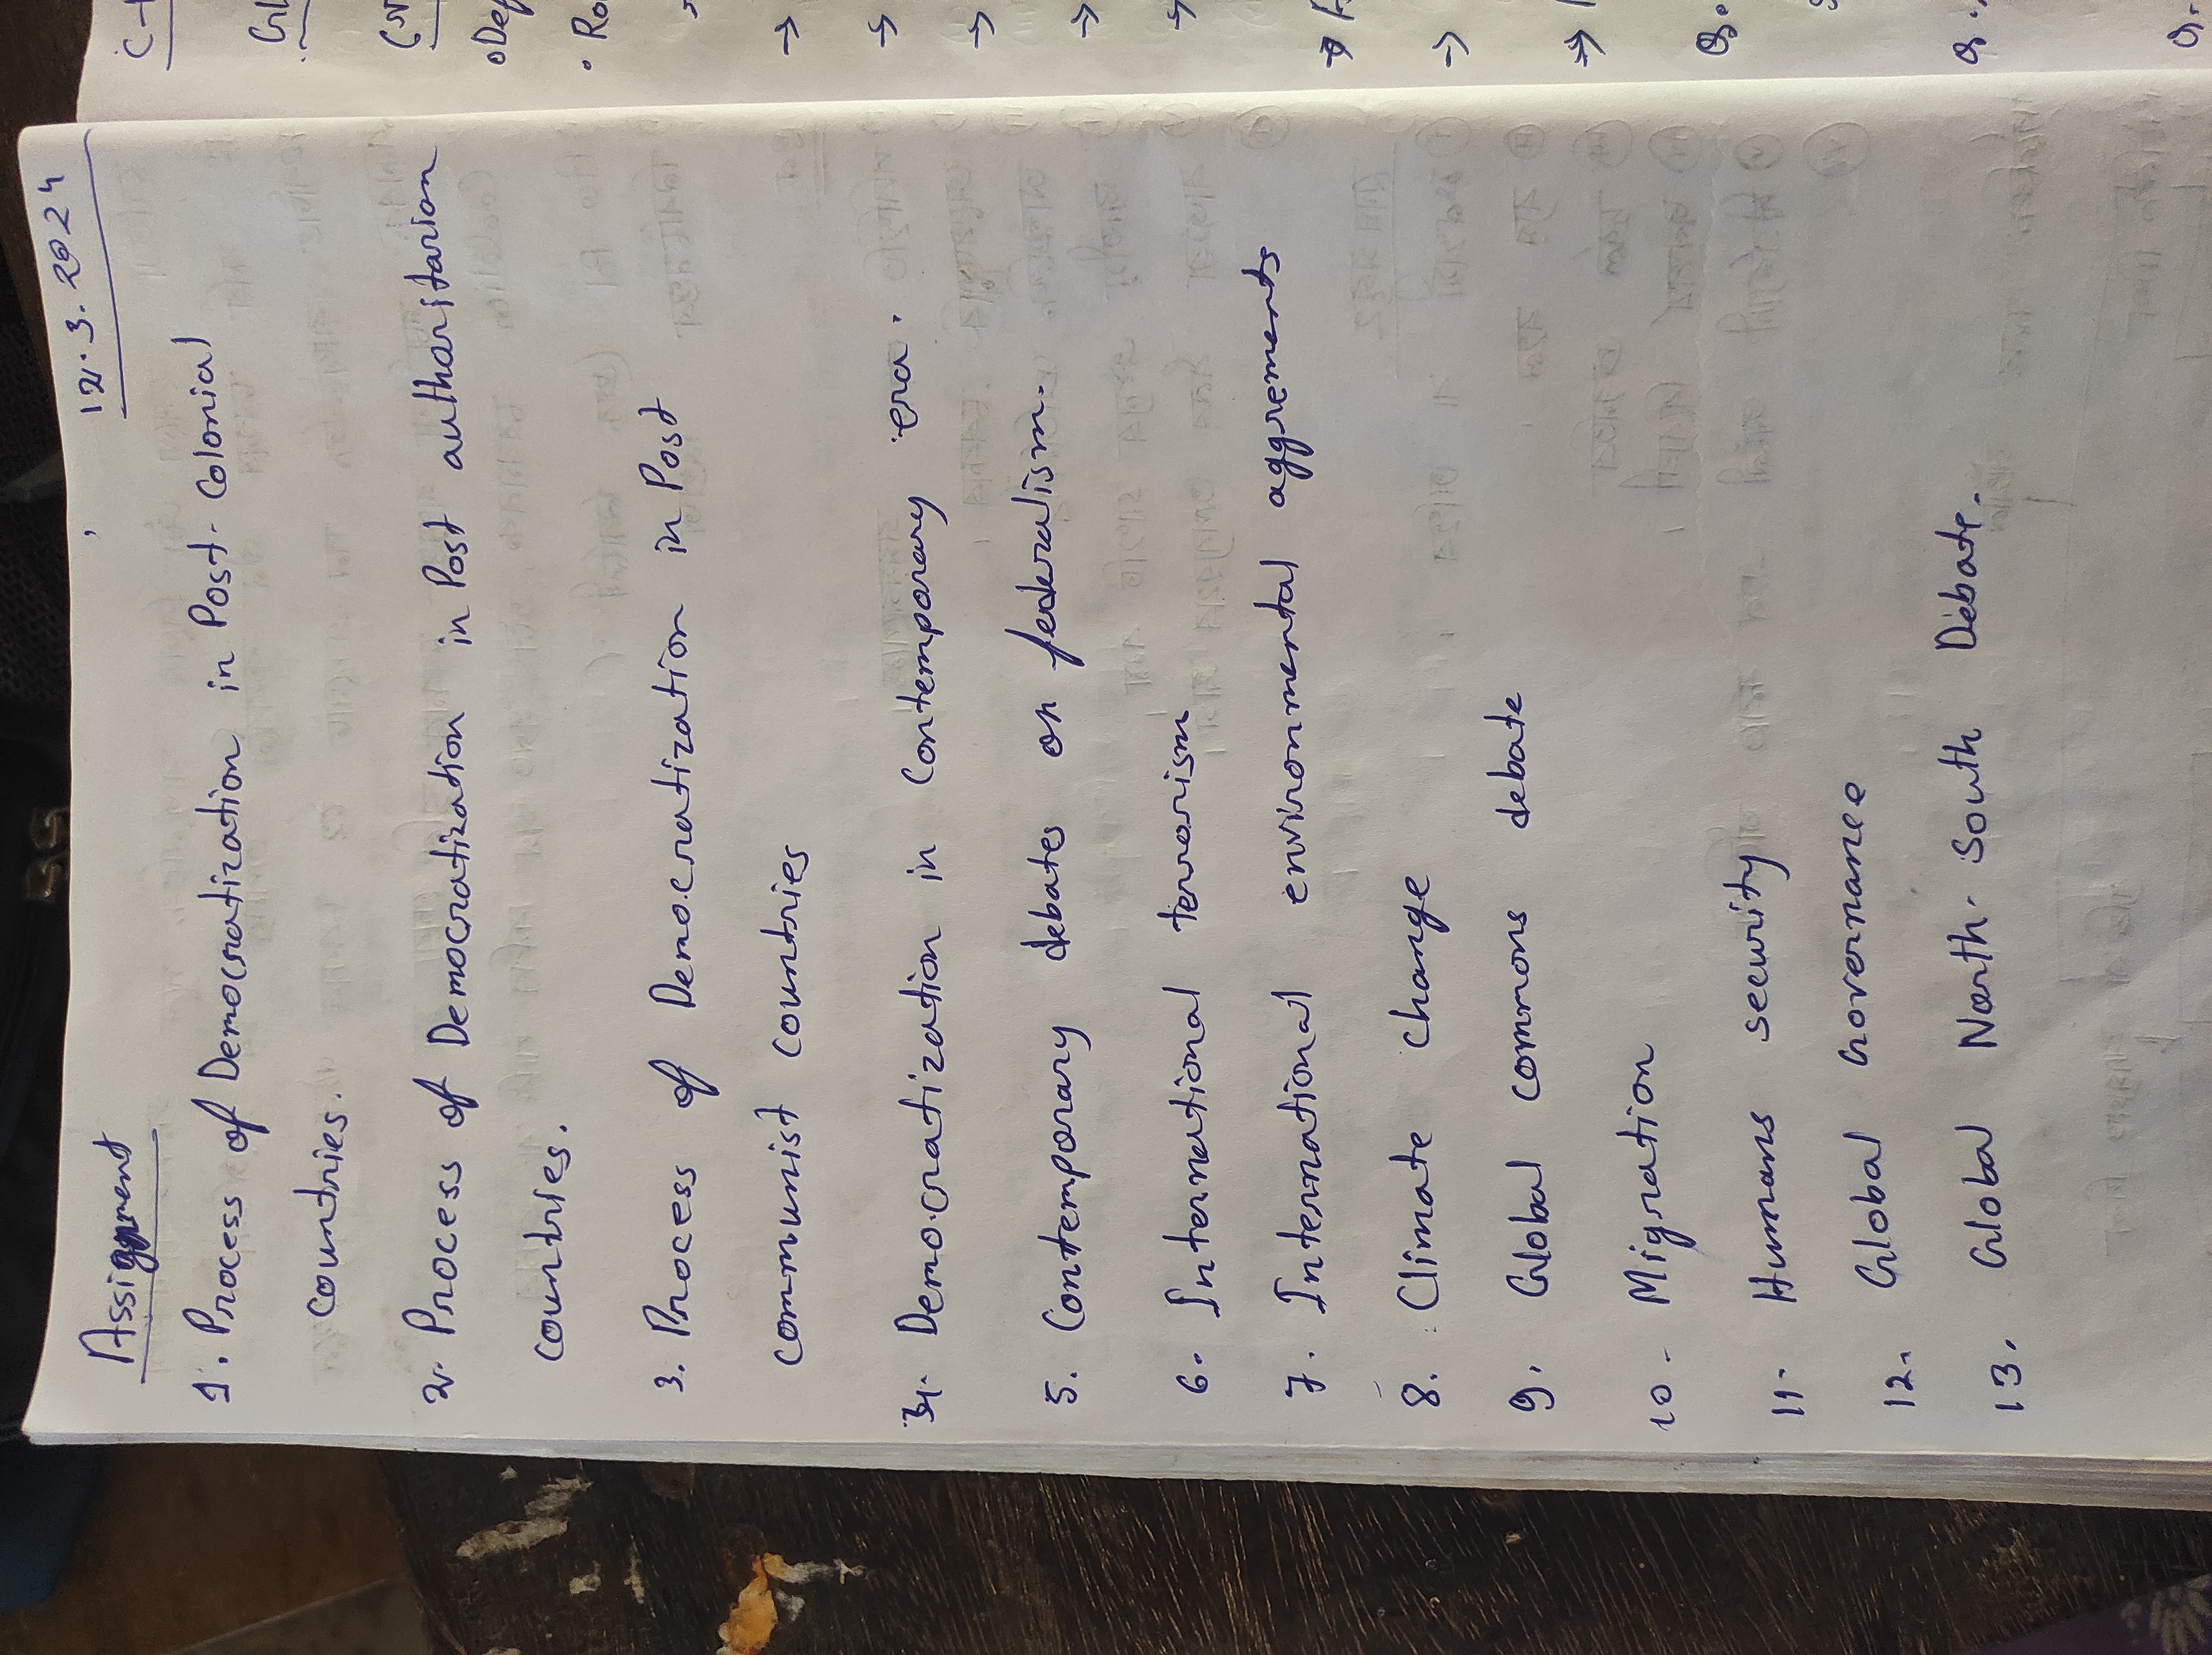 Assignment
12.3.2024
1. Process of Democratization in Post-Colonial
Countries.
2. Process of Democratization in Post authoristarion
countries.
3. Process of Democratization in Post
communist countries
4. Democratization in Contemporary era.
5. Contemporary debates on federalism.
6. International terrorism
7. International environmental aggrements
8. Climate change
9. Global commons debate
10. Migration
11. Humans security
12. Global Governance
13. Global North-South Debate.